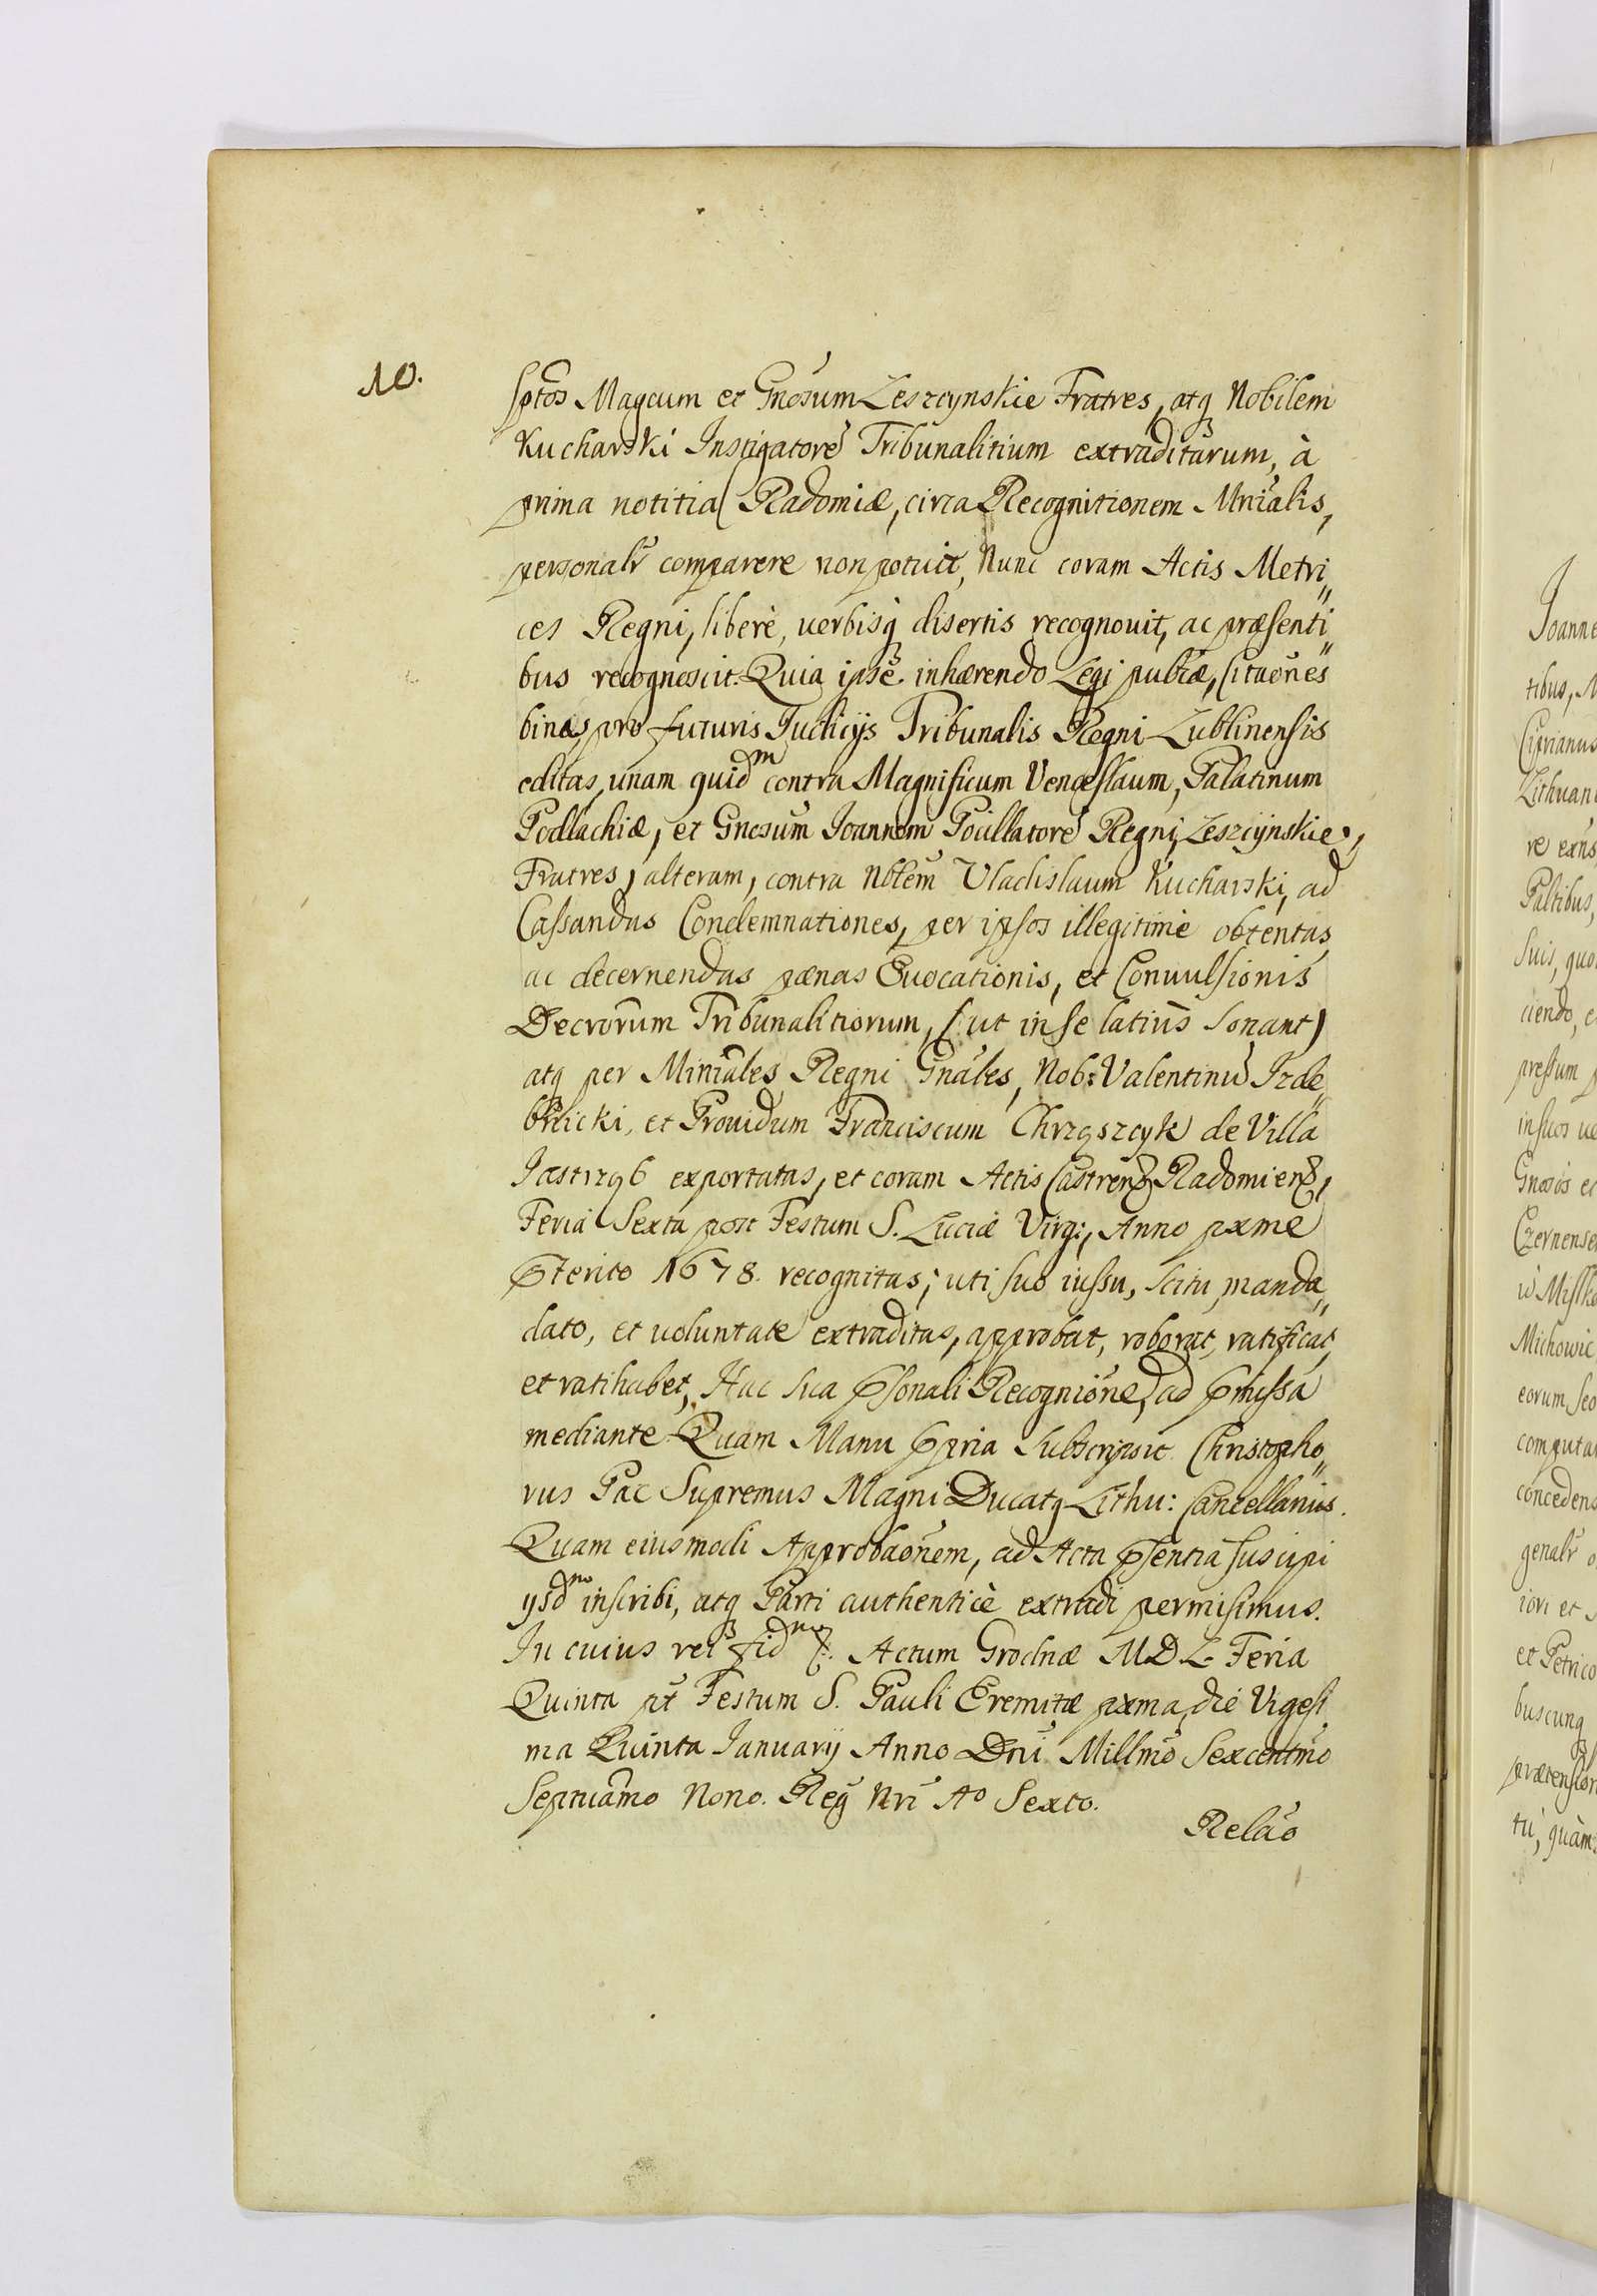 10.
sptos Magcum et Gnosum Leszcynskie Fratres, atq Nobilem
Kucharski Instigatorē Tribunalitium extraditarum, à
prima notitia Radomiæ, circa Recognitionem Mnialis,
personalr comparere non potuit, Nunc coram Actis Metri„
ces Regni, liberè, uerbisq disertis recognouit, ac præsenti„
bus recognoscit. Quia ipse inhærendo Legi publcæ, Citaōnes
binas, pro futuris Iudicijs Tribunalis Regni Lublinensis
editas, unam quidm contra Magnificum Venceslaum, Palatinum
Podlachiæ, et Gnosum Ioannem Pocillatorē Regni, Leszcijnskie,
Fratres, alteram, contra Nobtem Vladislaum Kucharski, ad
Cassandas Condemnationes, per ipsos illegitimè obtentas,
ac decernendas pænas Euocationis, et Conuulsionis
Decrorum Tribunalitiorum, (ut in se latiùs sonant)
atq per Minrales Regni Gnales, Nob: Valentinū Izde„
bnicki, et Prouidum Franciscum Chrzqszcyk de Villa
Iastrzqb exportatas, et coram Actis Castren Radomien,
Feria Sexta post Festum S. Luciæ Virg:, Anno pxme
pterito 1678. recognitas; uti suo iussu, scitu, manda„
dato, et uoluntate extraditas, approbat, roborat, ratificat,
et ratihabet, Hac sua psonali Recognione, ad pmissa
mediante. Quam Manu ppria Subscripsit Christopho„
rus Pac Supremus Magni Ducatq Lithu: Cancellarius.
Quam eiusmodi Approbaōnem, ad Acta psentia suscipi
ysdm inscribi, atq Parti authenticè extradi permisimus.
In cuius rei fidm &. Actum Grodnæ M D L Feria
Quinta pt Festum S. Pauli Eremitæ pxma, die Vigesi
ma Quinta Ianuarij Anno Dni Millmo Sexcentmo
Septuamo Nono. Reg Nri Ao Sexto.
Relao
Ioanne
tibus, M
Ciprianus
Lithuan
re exns
Paltibus,
suis, quo
ciendo, e
pressum p
in suos ue
Gnosos et
Czernense
Michowic
eorum, seo
computa
concedens
genalr o
iori et
et Petrico
buscunq
prætension
tu, quàm